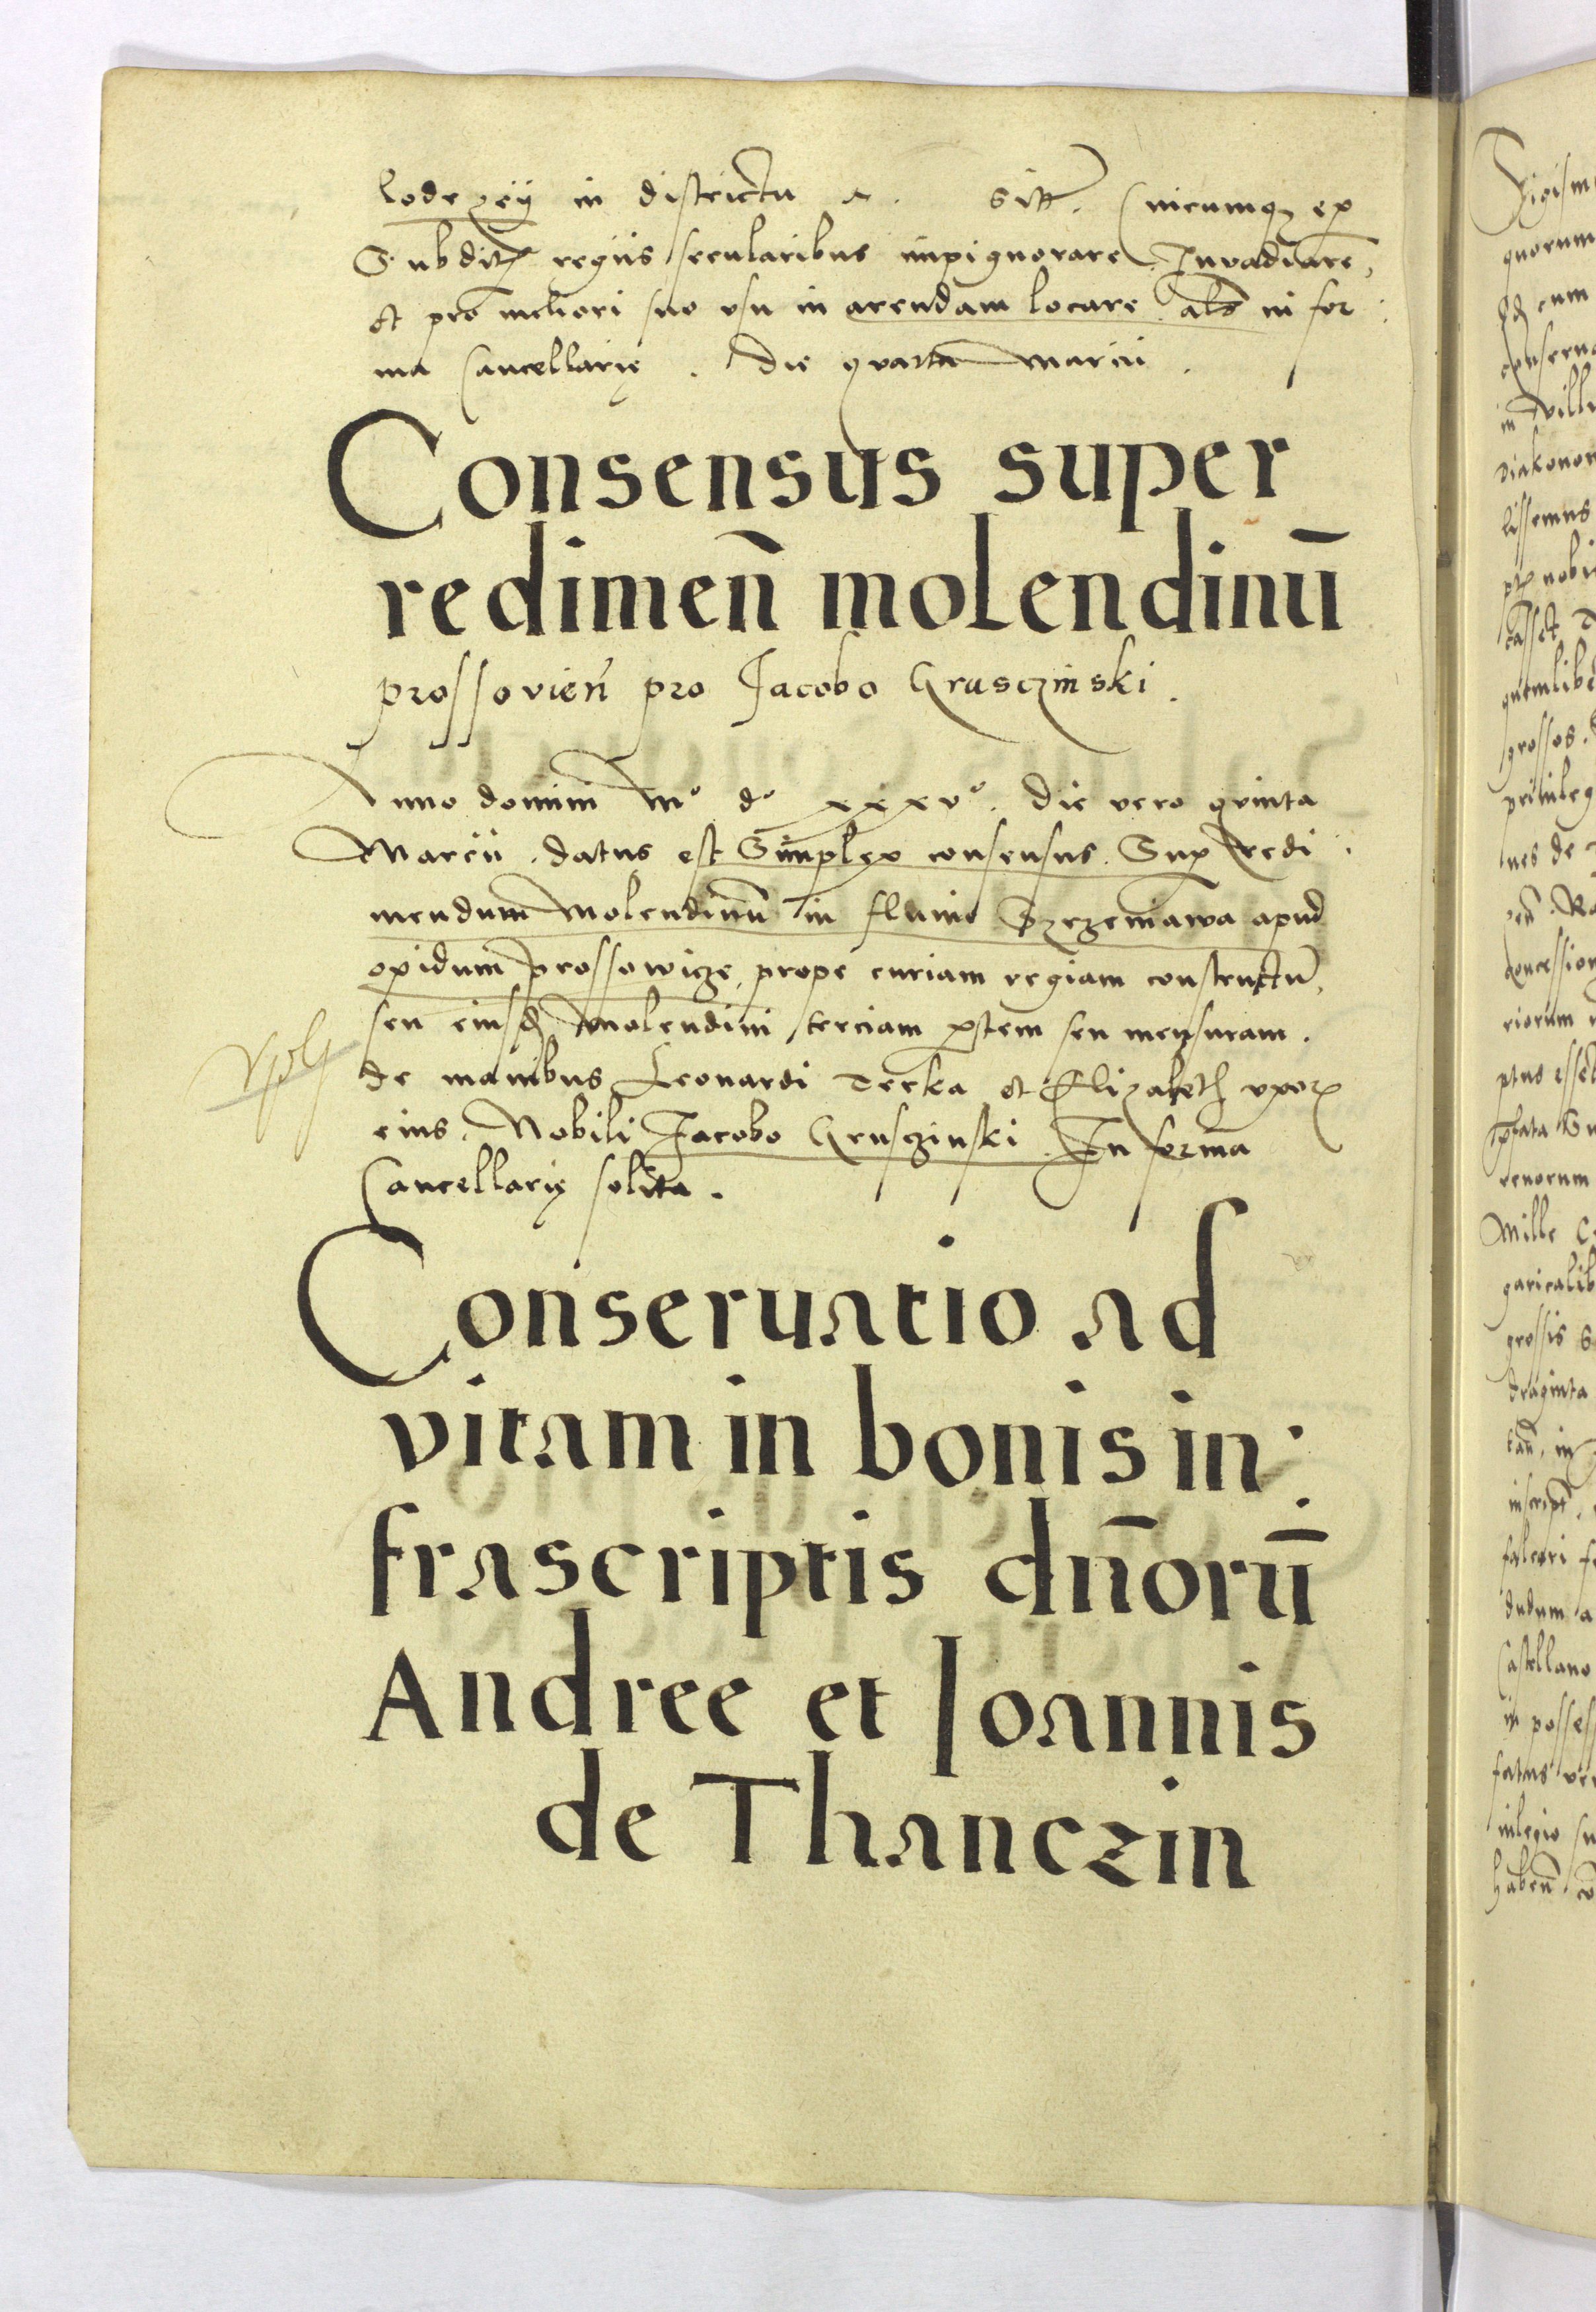 lodrzeij in districtu n. sitt. Cuicumq ex
Subditis regiis secularibus impignorare Invadiare,
et pro meliori suo usu in arendam locare als in for
ma Cancellarię. Die qvarta Marcii.
Consensus super
redimen̄ molendinū
prossovien̄ pro Jacobo Grusczinski.
Anno domini Mº dº xxxvº. Die vero qvinta
Marcii. datus est Simplex consensus. Sup redi
mendum Molendinū in fluvio Srzeniawa apud
opidum Prossowicze, prope curiam regiam constructū,
seu eiusd Molendini terciam ptem seu mensuram.
de manibus Leonardi Terka et Elizabeth uxor
eius. Nobili Jacobo Grusczinski. In forma
Cancellarię solita.
Conseruatio ad
vitam in bonis in:
frascriptis dn̄orū
Andree et Ioannis
de Thanczin
Sigism
quorum
cum
conserua
in villa
lissemus
nobi
quemlibe
grossos.
privileg
nes de
concessio
riorum
ptus esset
pfata Su
renorum
Mille
garicalib
grossis
draginta
inscript
dudum a
Castellano
in possess
fatus
uilegio su
haben̄